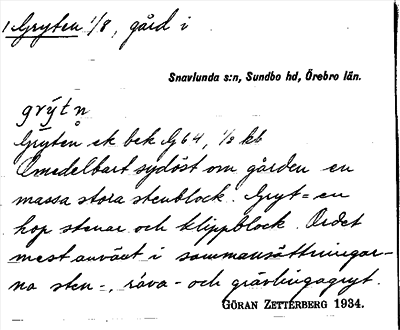 1 Gryten 1/8, gård i
Snavlunda s:n, Sundbo hd, Örebro län.
grýtn̥
Gryten ek bek G64, 1/8 kb
Omedelbart sydöst om gården en
massa stora stenblock. Gryt = en
hop stenar och klippblock. Ordet
mest använt i sammansättningar-
na sten-, räva- och grävlingagryt.
GÖRAN ZETTERBERG 1934.